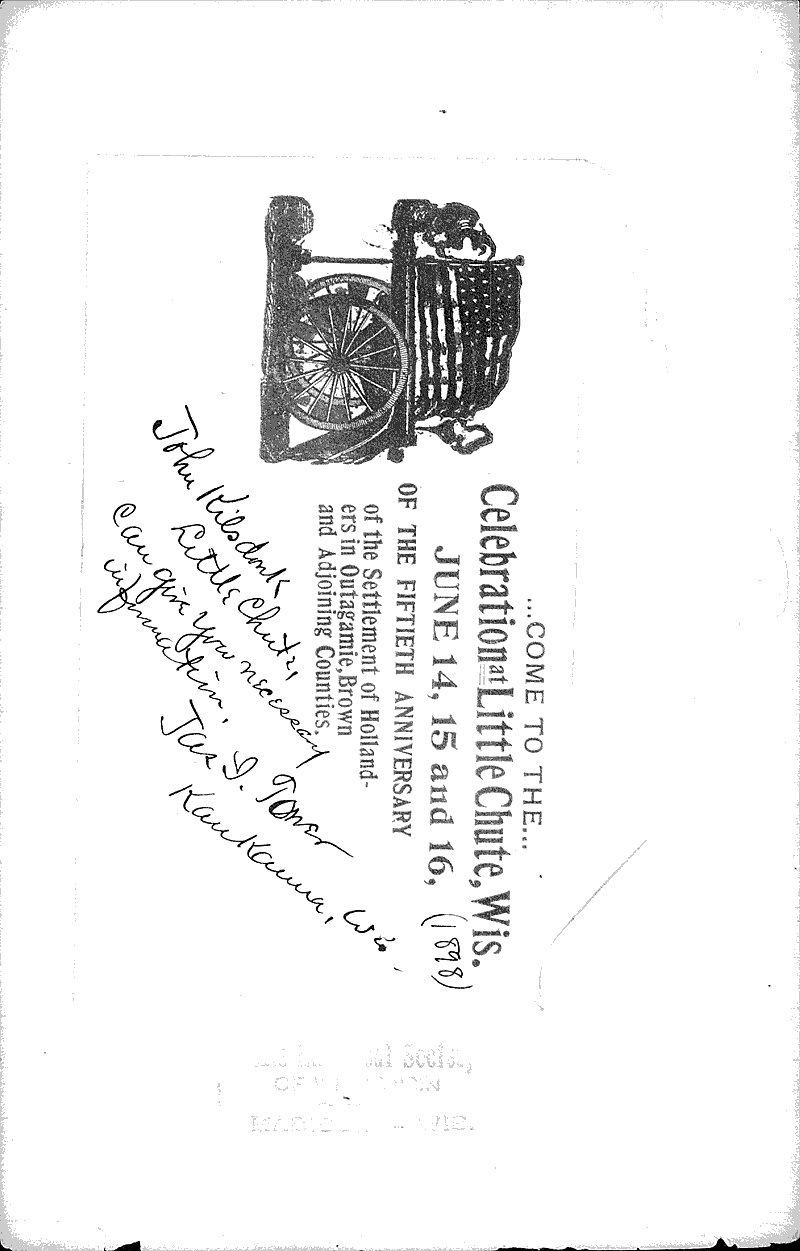 ...COME TO THE...
Celebration at Little Chute, Wis.
JUNE 14, 15 and 16, (1898)
OF THE FIFTIETH ANNIVERSARY
of the Settlement of Holland-
ers in Outagamie, Brown
and Adjoining Counties.
John Kilsdonk
Little Chute,
can give you necessary
information.
Jas I. Toner
Kaukauna, Wis.